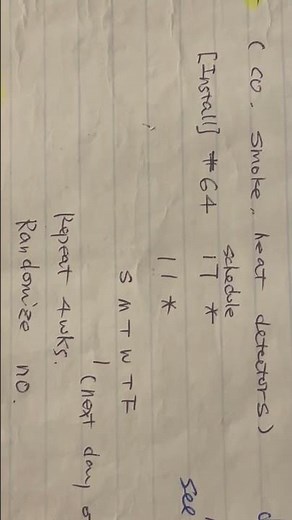 (CO, smoke, heat detectors)
schedule
[Install] #64 17 *
11 *
See
S M T W T F
(next day
Repeat 4 wks.
Randomize no.